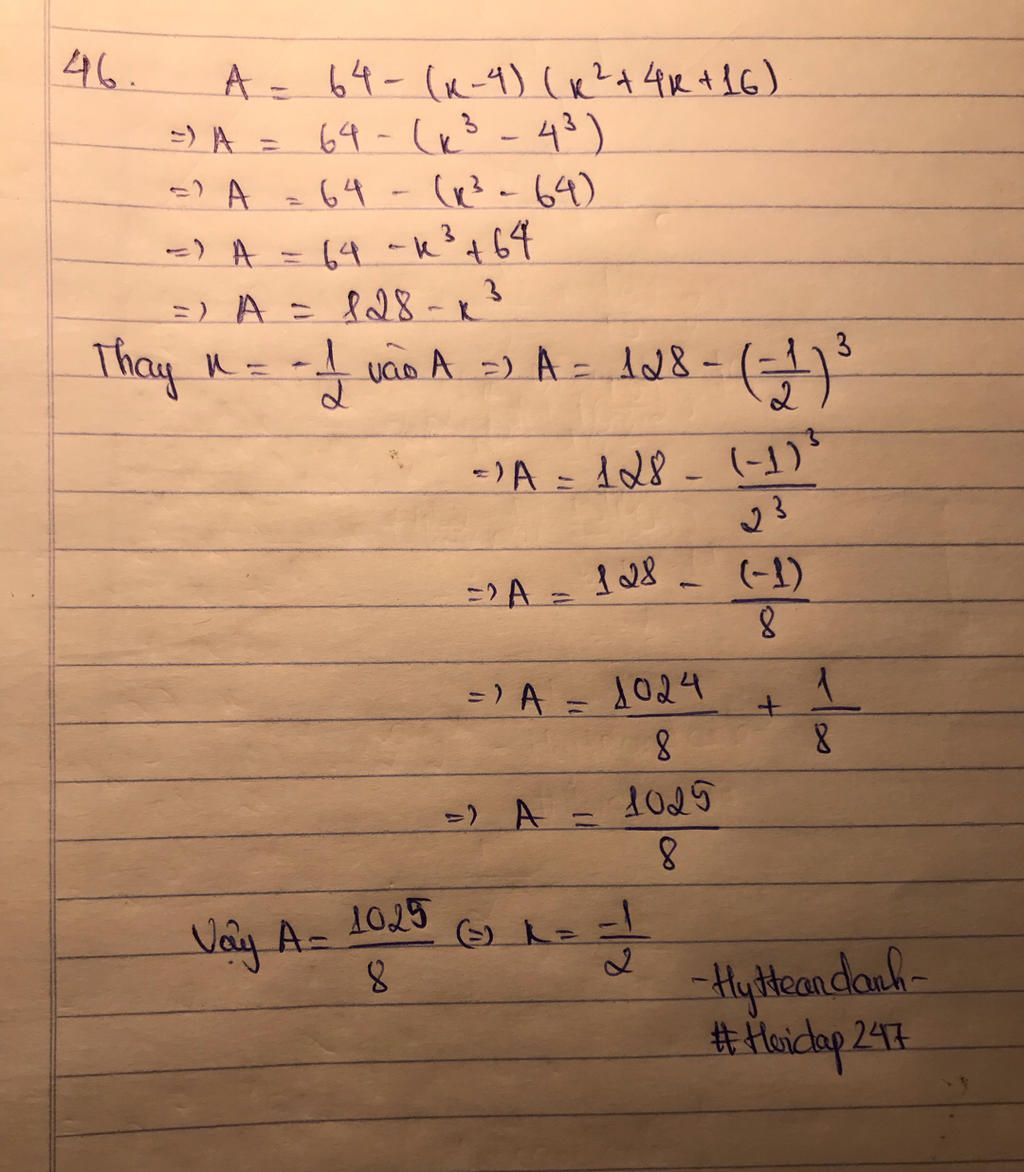 46. A = 64 - (x-4) (x² + 4x + 16)
=> A = 64 - (x³ - 4³)
=> A = 64 - (x³ - 64)
=> A = 64 - x³ + 64
=> A = 128 - x³
Thay x = -1/2 vào A => A = 128 - (-1/2)³
=> A = 128 - (-1)³/2³
=> A = 128 - (-1)/8
=> A = 1024/8 + 1/8
=> A = 1025/8
Vậy A = 1025/8 <=> x = -1/2
-HyHeandanh-
#Hoidap247